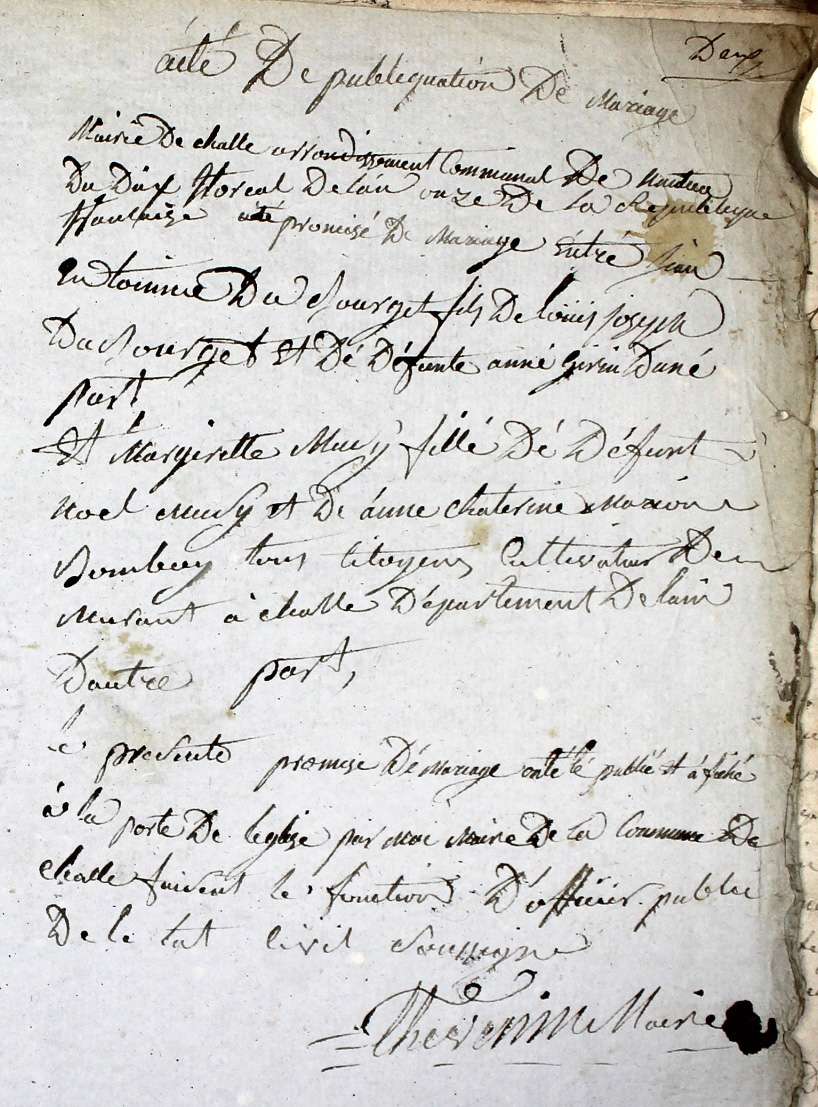 Deux
acté De publiquation De Mariage
Mairie De challe arrondissement Communal De Nantua
Du Dix floreal Delan onze De la Republique
francaise a été promisé De Mariage Entré jean
antoinne Du Bourget fils De louis joseph
Du Bourget Et Dé Défunte anné Girin Duné
part
Et Margirette Mucy fillé Dé Défunt
Noel Mucy Et De anne chaterine Marion
Bomboy tous Citoyens Cultivatur De
Murant à challe Département Delain
Dautre part,
le presente promise Dé Mariage onté té publié Et a fiché
à la porte De leglise par moi Maire De la Commune De
challe faisent le fonction D'officier public
De le tat Civil Soussigne
Thevenin Maire